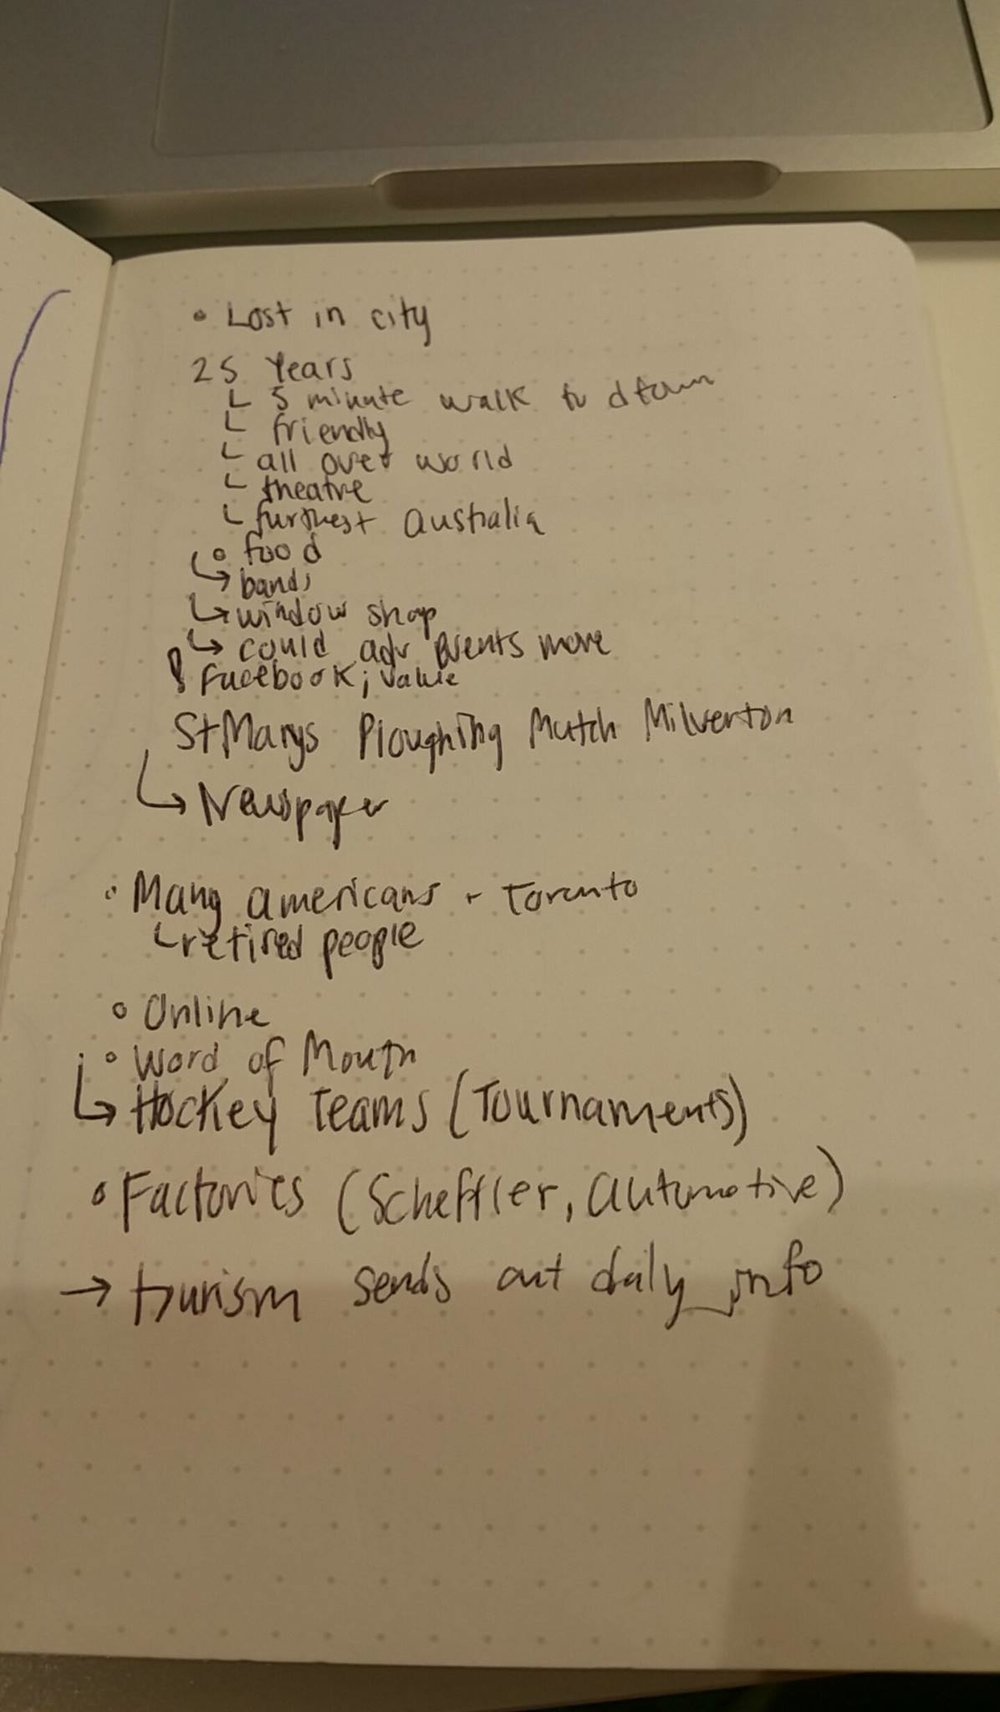 • Lost in city
25 Years
└ 5 minute walk to dtown
└ friendly
└ all over world
└ theatre
└ furthest Australia
↳ ∘ food
↳ bands
↳ window shop
↳ could adv events more
Facebook; value
St Marys Ploughing Match Milverton
↳ Newspaper
• Many americans + Toronto
└ retired people
∘ Online
∘ Word of Mouth
↳ Hockey Teams (Tournaments)
∘ Factories (Scheffler, automotive)
→ turism sends out daly info